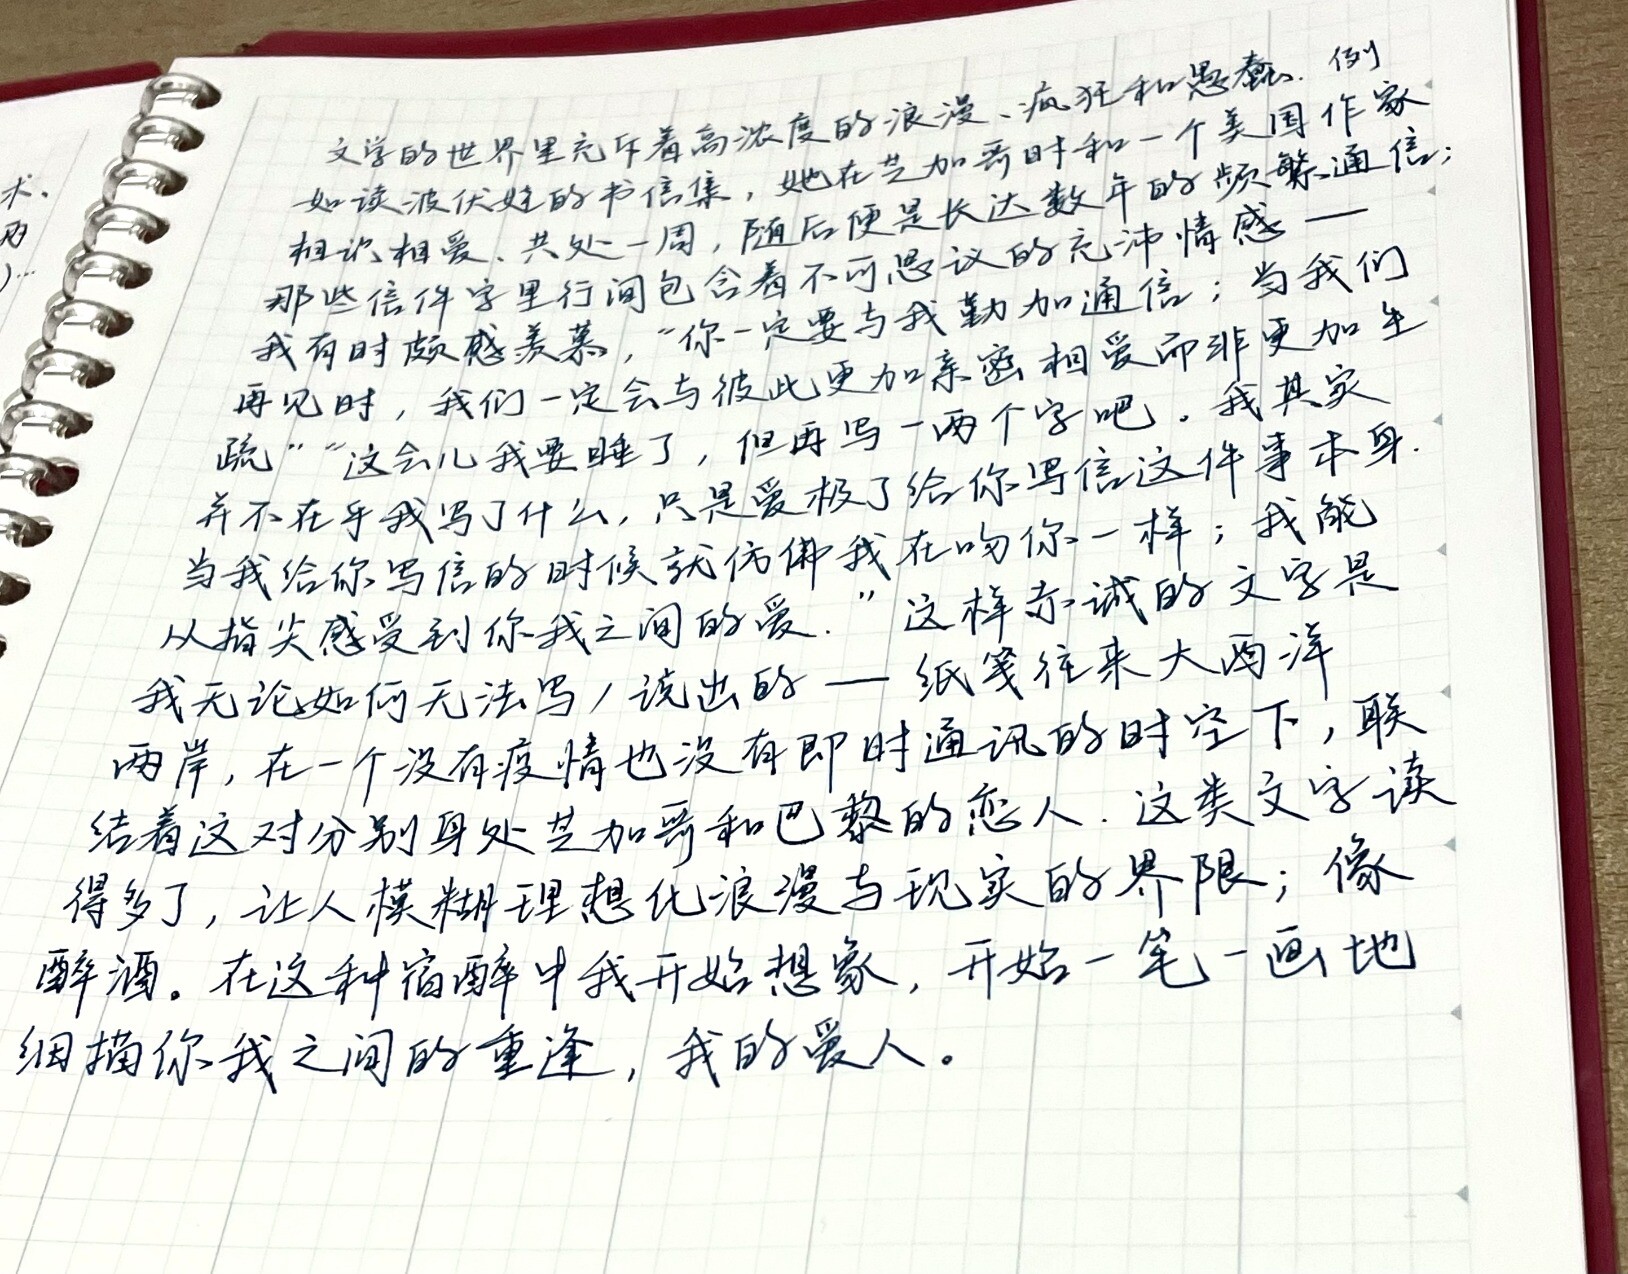 文学的世界里充斥着高浓度的浪漫、疯狂和愚蠢. 例
如读波伏娃的书信集，她在芝加哥时和一个美国作家
相识相爱、共处一周，随后便是长达数年的频繁通信；
那些信件字里行间包含着不可思议的充沛情感——
我有时颇感羡慕，“你一定要与我勤加通信；当我们
再见时，我们一定会与彼此更加亲密相爱而非更加生
疏”“这会儿我要睡了，但再写一两个字吧。我其实
并不在乎我写了什么，只是爱极了给你写信这件事本身.
当我给你写信的时候就仿佛我在吻你一样；我能
从指尖感受到你我之间的爱.”这样赤诚的文字是
我无论如何无法写/说出的——纸笺往来大西洋
两岸，在一个没有疫情也没有即时通讯的时空下，联
结着这对分别身处芝加哥和巴黎的恋人. 这类文字读
得多了，让人模糊理想化浪漫与现实的界限；像
醉酒。在这种宿醉中我开始想象，开始一笔一画地
细描你我之间的重逢，我的爱人。
术.